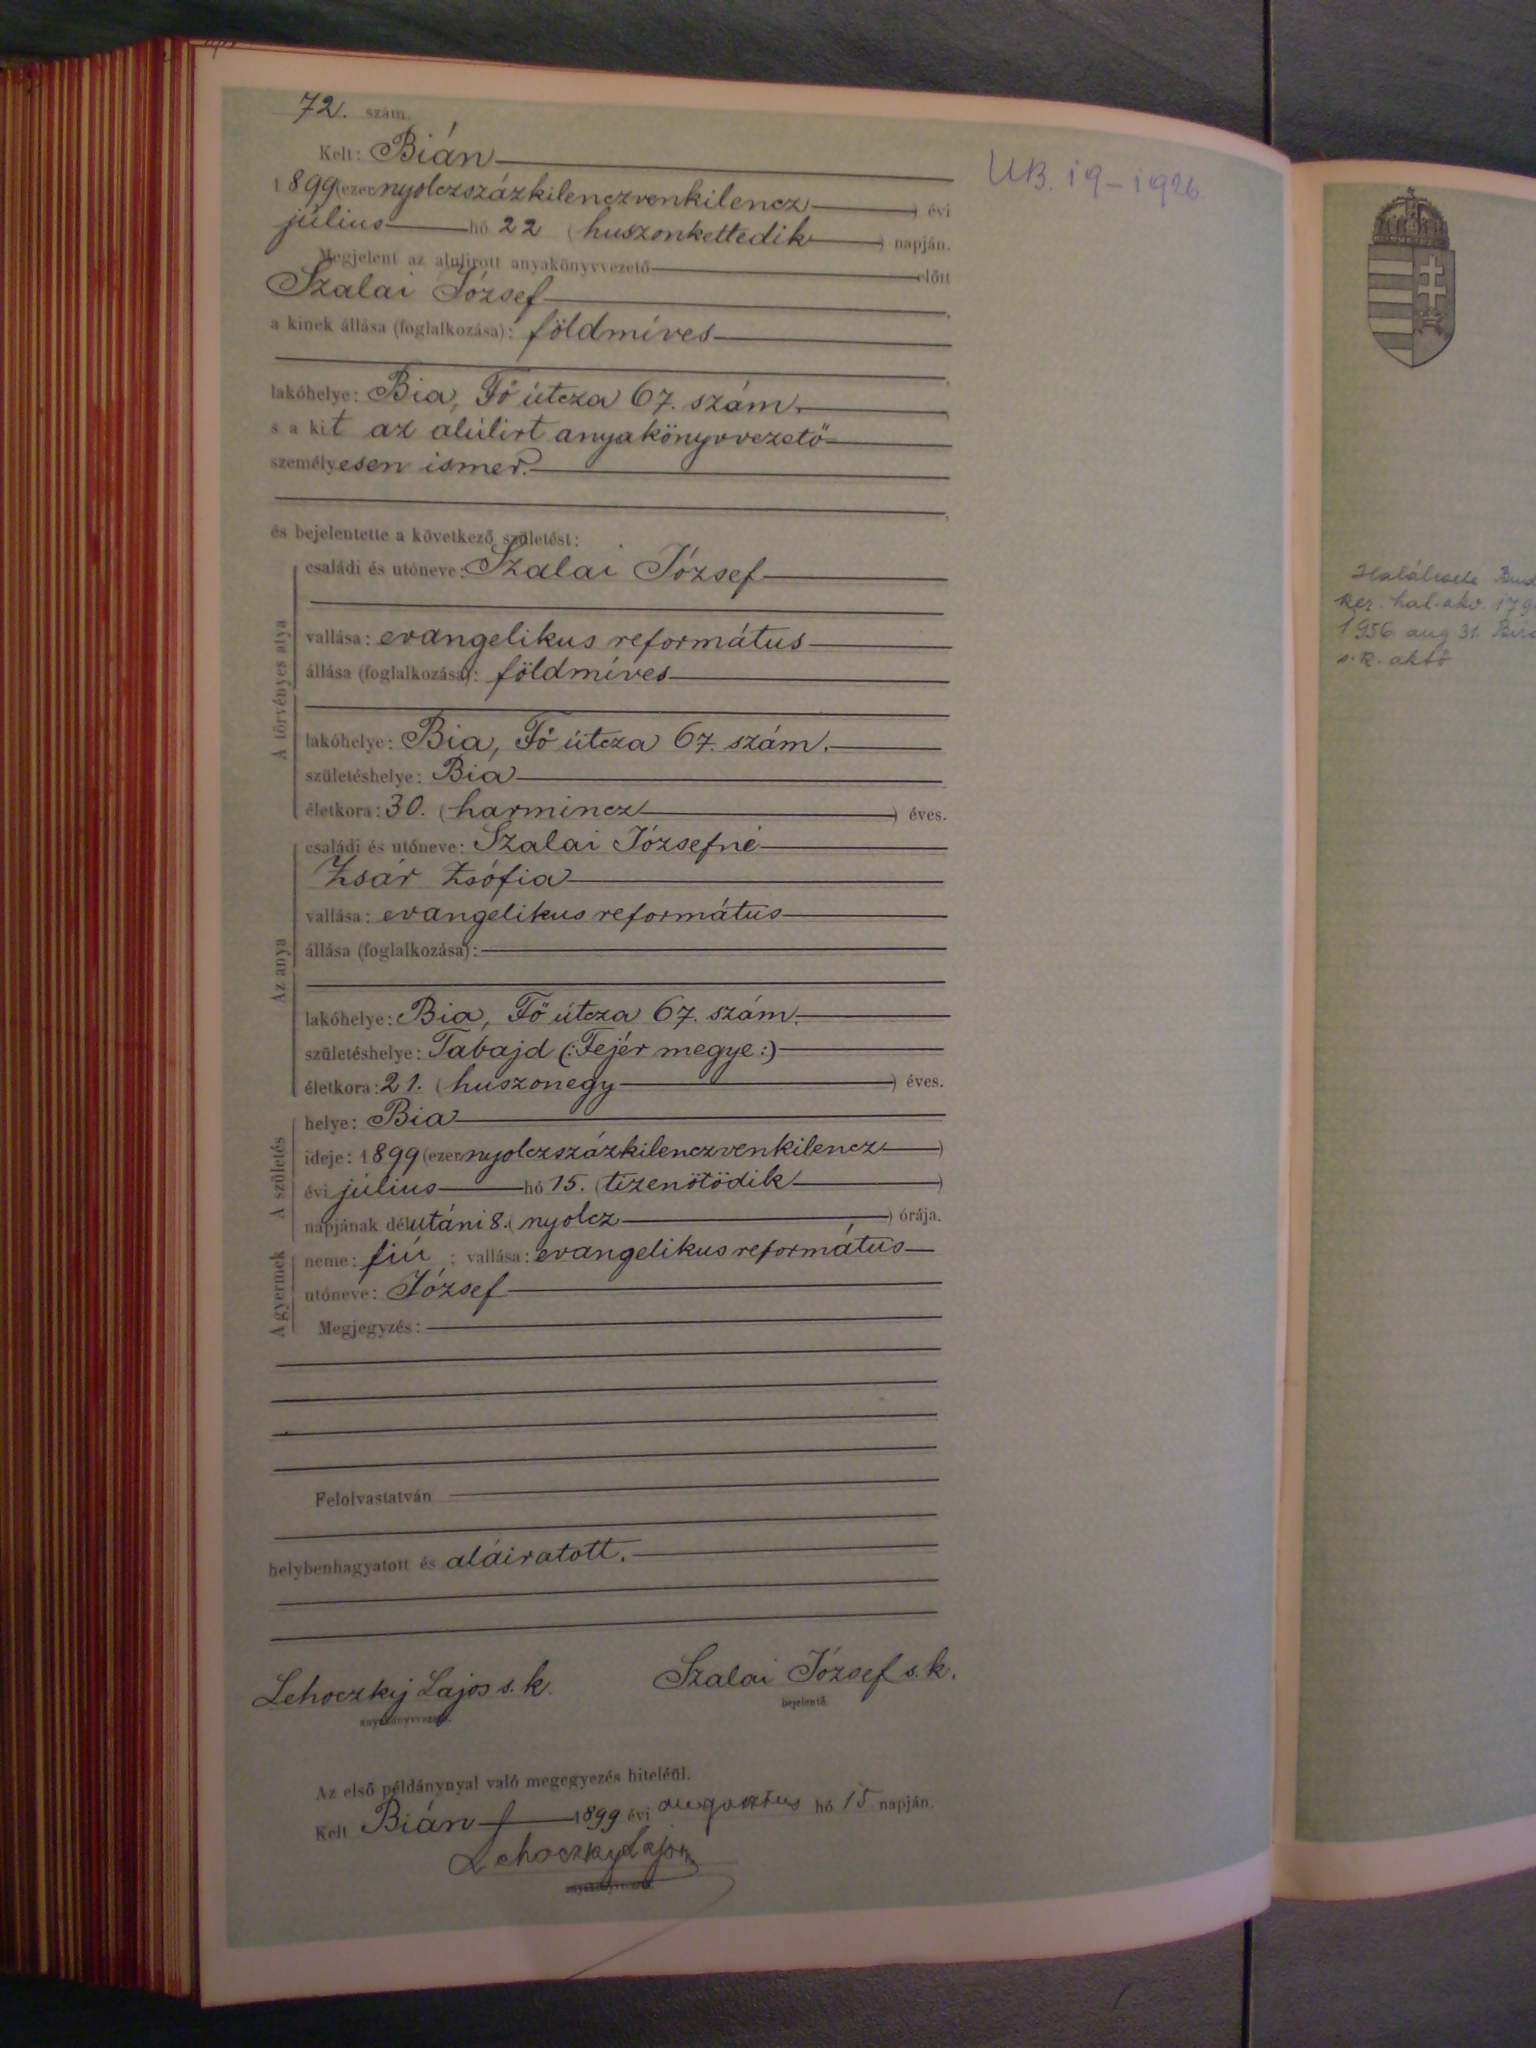 72. szám.
Kelt: Bián
1899 (ezernyolczszázkilenczvenkilencz) évi
július hó 22 (huszonkettedik) napján.
Megjelent az alulirott anyakönyvvezető előtt
Szalai József,
a kinek állása (foglalkozása): földmíves
lakóhelye: Bia, Fő útcza 67. szám.,
s a kit az alúlirt anyakönyvvezető
személyesen ismer.
és bejelentette a következő születést:
A törvényes atya
családi és utóneve: Szalai József
vallása: evangelikus református
állása (foglalkozása): földmíves
lakóhelye: Bia, Fő útcza 67. szám.
születéshelye: Bia
életkora: 30. (harmincz) éves.
Az anya
családi és utóneve: Szalai Józsefné
Zsár Zsófia
vallása: evangelikus református
állása (foglalkozása):
lakóhelye: Bia, Fő útcza 67. szám.
születéshelye: Tabajd (:Fejér megye:)
életkora: 21. (huszonegy) éves.
A születés
helye: Bia
ideje: 1899 (ezernyolczszázkilenczvenkilencz)
évi július hó 15. (tizenötödik)
napjának délutáni 8. (nyolcz) órája.
A gyermek
neme: fiú; vallása: evangelikus református
utóneve: József
Megjegyzés:
Felolvastatván
helybenhagyatott és aláiratott.
Lehoczky Lajos s. k.
anyakönyvvezető.
Szalai József s. k.
bejelentő.
Az első példánynyal való megegyezés hiteléül.
Kelt Bián 1899 évi augusztus hó 15 napján.
Lehoczky Lajos
anyakönyvvezető.
UB. 19-1926.
Halálesete Bud
ker. hal. akv. 179
1956 aug 31.
s. k. akvő